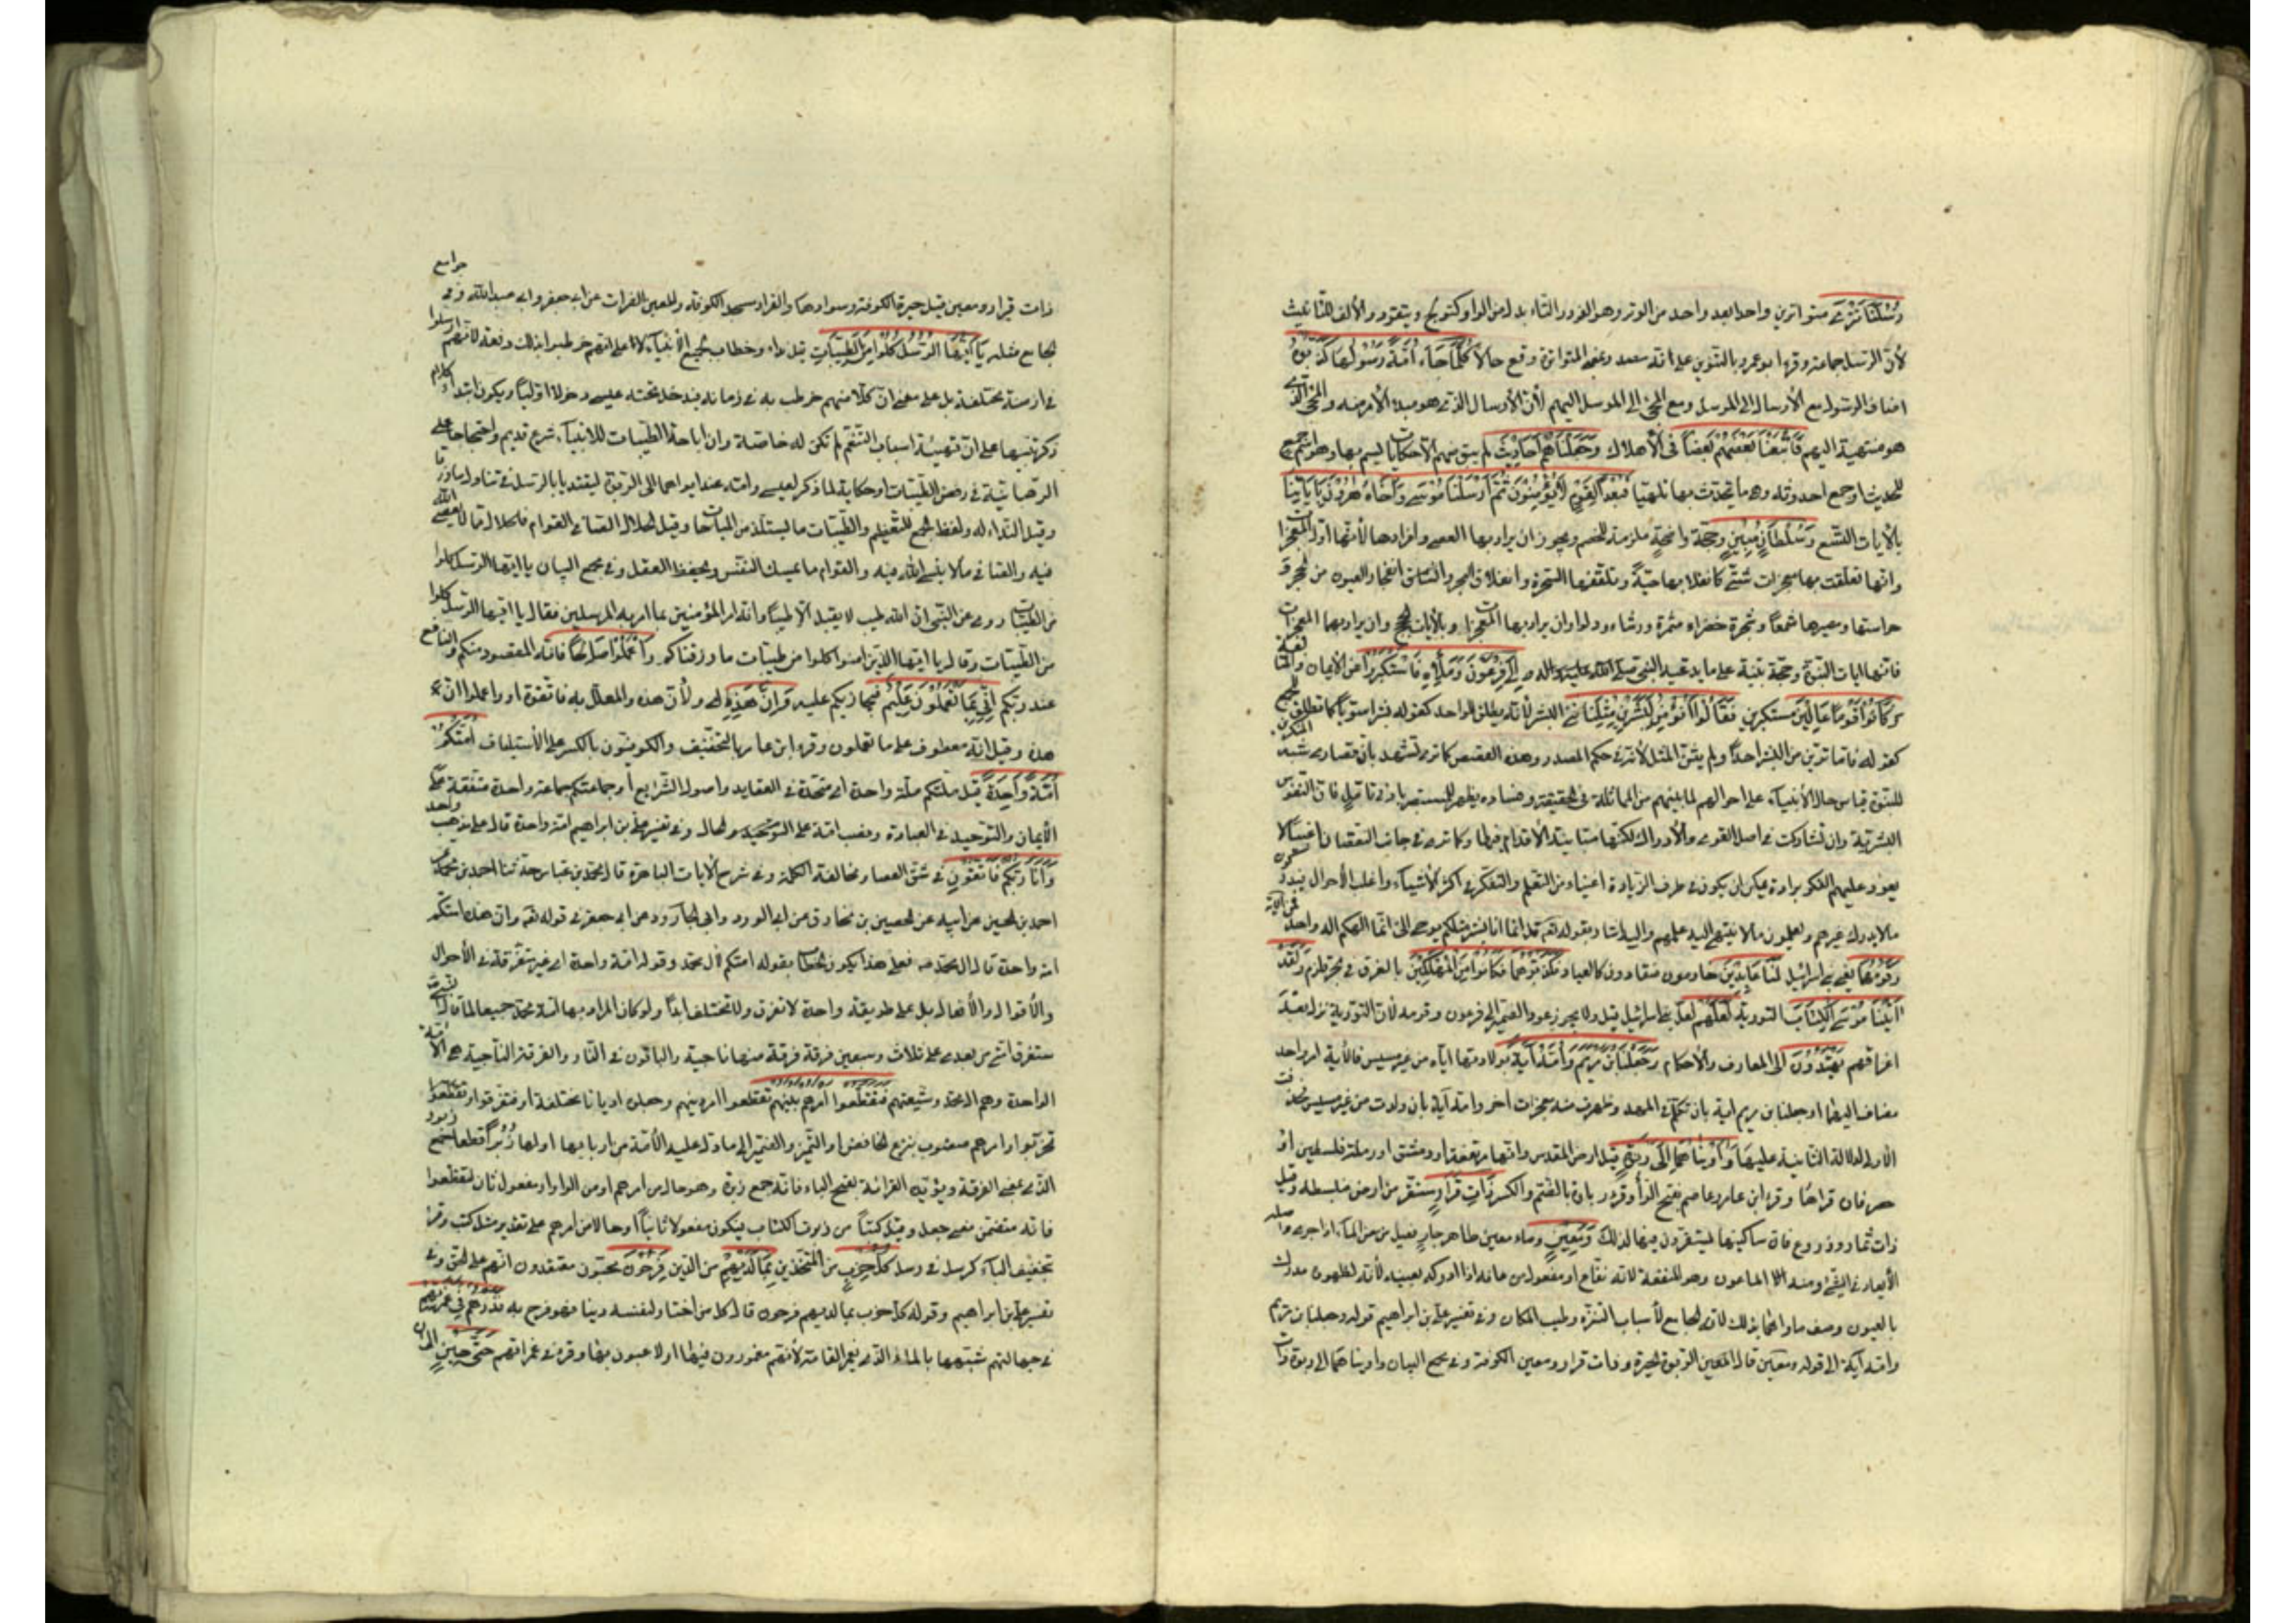 رُسُلَنَا تَتْرَى متواترين واحدا بعد واحد من الوتر وهو الفرد والتاء بدل من الواو كتولج ويتقور والألف للتأنيث
لأن الرسل جماعة وقرء ابو عمرو بالتنوين على انه مصدر بمعنى المتواترة وقع حالاً كُلَّمَا جَاءَ أُمَّةً رَسُولُهَا كَذَّبُوهُ
اضاف الرسول مع الأرسال الى المرسل ومع المجئ الى المرسل اليهم لأن الأرسال الذى هو مبدء الأمر منه والمجئ الذى
هو منتهية اليهم فَأَتْبَعْنَا بَعْضَهُمْ بَعْضاً فى الأهلاك وَجَعَلْنَاهُمْ أَحَادِيثَ لم يبق منهم الا حكايات يسمر بها وهو اسم جمع
للحديث او جمع احدوثة وهى ما يتحدث بها تلهيا فَبُعْداً لِقَوْمٍ لَا يُؤْمِنُونَ ثُمَّ أَرْسَلْنَا مُوسَى وَأَخَاهُ هَارُونَ بِآيَاتِنَا
بالأيات التسع وَسُلْطَانٍ مُبِينٍ وحجة واضحة ملزمة للخصم ويجوز ان يراد بها العصى وافرادها لأنها اول المعجزات
وانها تعلقت بها معجزات شتى كانقلابها حيّة وتلقفها السحرة وانفلاق البحر وانفجار العيون من الحجر و
حراستها ومصيرها شمعاً وشجرة خضراء مثمرة ورشاء ودلوا وان يراد بها المعجزات وبالأيات الحجج وان يراد بهما المعجزات
فانها ايات النبوة وحجة بينة على ما يدعيه النبى صلى الله عليه واله إِلَى فِرْعَوْنَ وَمَلَأِهِ فَاسْتَكْبَرُوا عن الأيمان والمتابعة
وَكَانُوا قَوْماً عَالِينَ متكبرين فَقَالُوا أَنُؤْمِنُ لِبَشَرَيْنِ مِثْلِنَا ثنى البشر لأنه يطلق للواحد كقوله بشرا سويا كما تطلق للجمع
كقوله فاما ترين من البشر احداً ولم يثن المثل لأنه فى حكم المصدر وهذه القصص كما ترى تشهد بأن قصارى شبه المنكرين
للنبوة قياس حال الأنبياء على احوالهم لما بينهم من المماثلة فى الحقيقة وفساده يظهر للمستبصر بادنى تامل فان النفوس
البشرية وان تشاركت فى اصل القوى والأدراك لكنها متباينة الأقدام فيهما وكما ترى فى جانب النقصان اغبياء لا
يعود عليهم الفكر برادة يمكن ان يكون فى طرف الزيادة اغنياء من التعلم والتفكر فى اكثر الأشياء واغلب الأحوال فيدركون
مالا يدرك غيرهم ويعلمون مالا ينتهى اليه علمهم واليه اشار بقوله تعالى قل انما انا بشر مثلكم يوحى الى انما الهكم اله واحد
وَقَوْمُهُمَا يعنى بنى اسرائيل لَنَا عَابِدُونَ خادمون منقادون كالعباد فَكَذَّبُوهُمَا فَكَانُوا مِنَ الْمُهْلَكِينَ بالغرق فى بحر قلزم وَلَقَدْ
آتَيْنَا مُوسَى الْكِتَابَ التورية لَعَلَّهُمْ لعل بنى اسرائيل قيل ولا يجوز عود الضمير الى فرعون وقومه لأن التورية نزلت بعد
اغراقهم يَهْتَدُونَ الى المعارف والأحكام وَجَعَلْنَا ابْنَ مَرْيَمَ وَأُمَّهُ آيَةً بولادتها اياه من غير مسيس فالأية امر واحد
مضاف اليهما او جعلنا ابن مريم اية بان تكلم فى المهد وظهرت منه معجزات اخر وامه آية بان ولدت من غير مسيس فحذفت
الأولى لدلالة الثانية عليها وَآوَيْنَاهُمَا إِلَى رَبْوَةٍ قيل ارض المقدس وانها مرتفعة او دمشق او رملة فلسطين او
مصر فان قراها وقرء ابن عامر وعاصم بفتح الراء وقرء رباوة بالضم والكسر ذَاتِ قَرَارٍ مستقر من ارض منبسطة وقيل
ذات ثمار وزروع فان ساكنيها يستقرون فيها لذلك وَمَعِينٍ وماء معين ظاهر جار فعيل من معن الماء اذا جرى واصله
الأبعاد فى الشئ ومنه الماعون وهو المنفعة لأنه نفاع او مفعول من عانه اذا ادركه بعينه لأنه لظهوره مدرك
بالعيون وصف ماؤها بذلك لأنه الجامع لأسباب التنزه وطيب المكان وفى تفسير على بن ابراهيم قوله وجعلنا ابن مريم
وامه آية الى قوله ومعين قال المعين الربوة الحيرة وذات قرار ومعين الكوفة وفى مجمع البيان واويناهما الى ربوة ذات
ذات قرار ومعين قيل حيرة الكوفة وسوادها والقرار مسجد الكوفة والمعين الفرات عن ابى جعفر وابى عبد الله وفى جوامع
الجامع مثله يَا أَيُّهَا الرُّسُلُ كُلُوا مِنَ الطَّيِّبَاتِ قيل نداء وخطاب لجميع الأنبياء لا على انهم خوطبوا بذلك دفعة لأنهم ارسلوا
فى ازمنة مختلفة بل على معنى ان كلا منهم خوطب به فى زمانه فيدخل تحته عيسى دخولا اوليا ويكون ابتداء كلام
ذكر تنبيها على ان تهيئة اسباب التنعم لم تكن له خاصة وان اباحة الطيبات للأنبياء شرع قديم واحتجاجا على
الرهبانية فى رفض الطيبات او حكاية لما ذكر لعيسى وامه عند ايوائهما الى الربوة ليقتديا بالرسل فى تناول ما رزقا
وقيل النداء له ولفظ الجمع للتعظيم والطيبات ما يستلذ من المباحات وقيل الحلال الصافى القوام فالحلال ما لا يعصى الله
فيه والصافى مالا ينسى الله فيه والقوام ما يمسك النفس ويحفظ العقل وفى مجمع البيان يا ايها الرسل كلوا
من الطيبات روى عن النبى ان الله طيب لا يقبل الا طيبا وانه امر المؤمنين بما امر به المرسلين فقال يا ايها الرسل كلوا
من الطيبات وقال يا ايها الذين امنوا كلوا من طيبات ما رزقناكم وَاعْمَلُوا صَالِحاً فانه المقصود منكم والنافع
عند ربكم إِنِّي بِمَا تَعْمَلُونَ عَلِيمٌ فيجازيكم عليه وَإِنَّ هَذِهِ اى ولأن هذه والمعلل به فاتقون او واعلموا ان
هذه وقيل انه معطوف على ما تعملون وقرء ابن عامر بالتخفيف والكوفيون بالكسر على الأستيناف أُمَّتُكُمْ
أُمَّةً وَاحِدَةً قيل ملتكم ملة واحدة اى متحدة فى العقايد واصول الشرايع او جماعتكم جماعة واحدة متفقة على
الأيمان والتوحيد فى العبادة ونصب امة على الحال وفى تفسير على بن ابراهيم امة واحدة قال على مذهب واحد
وَأَنَا رَبُّكُمْ فَاتَّقُونِ فى شق العصا ومخالفة الكلمة وفى شرح الأيات الباهرة قال محمد بن عباس حدثنا احمد بن محمد عن
احمد بن الحسين عن ابيه عن الحصين بن مخارق عن ابى الورد وابى الجارود عن ابى جعفر فى قوله تعالى وان هذه امتكم
امة واحدة قال ال محمد فعلى هذا يكون الخطاب بقوله امتكم لأل محمد وقوله امة واحدة اى غير متفرقة فى الأحوال
والأقوال والأفعال بل على طريقة واحدة لا تفترق ولا تختلف ابداً ولو كان المراد بها امة محمد جميعا لما قال النبى
ستفرق امتى من بعدى على ثلاث وسبعين فرقة فرقة منها ناجية والباقون فى النار والفرقة الناجية هى الأمة
الواحدة وهم ال محمد وشيعتهم فَتَقَطَّعُوا أَمْرَهُمْ بَيْنَهُمْ تقطعوا امر دينهم وجعلوه اديانا مختلفة او فتفرقوا
تحزبوا وامرهم منصوب بنزع الخافض او التميز والضمير الى ما دل عليه الأمة من اربابها او لها زُبُراً قطعا جمع زبور
الذى بمعنى الفرقة ويؤيده القرائة بفتح الباء فانه جمع زبرة وهو حال من امرهم او من الواو او مفعول ثان لتقطعوا
فانه متضمن معنى جعل وقيل كتباً من زبرت الكتاب فيكون مفعولا ثانياً او حالا من امرهم على تقدير مثل كتب وقرء
بتخفيف الباء كرسل فى رسل كُلُّ حِزْبٍ من المتحزبين بِمَا لَدَيْهِمْ من الدين فَرِحُونَ معجبون معتقدون انهم على الحق وفى
تفسير على بن ابراهيم وقوله كل حزب بما لديهم فرحون قال كل من اختار لنفسه دينا فهو فرح به فَذَرْهُمْ فِي غَمْرَتِهِمْ
فى جهالتهم شبهها بالماء الذى يغمر القامة لأنهم مغمورون فيها او لاعبون بها وقرء فى غمراتهم حَتَّى حِينٍ الى ان